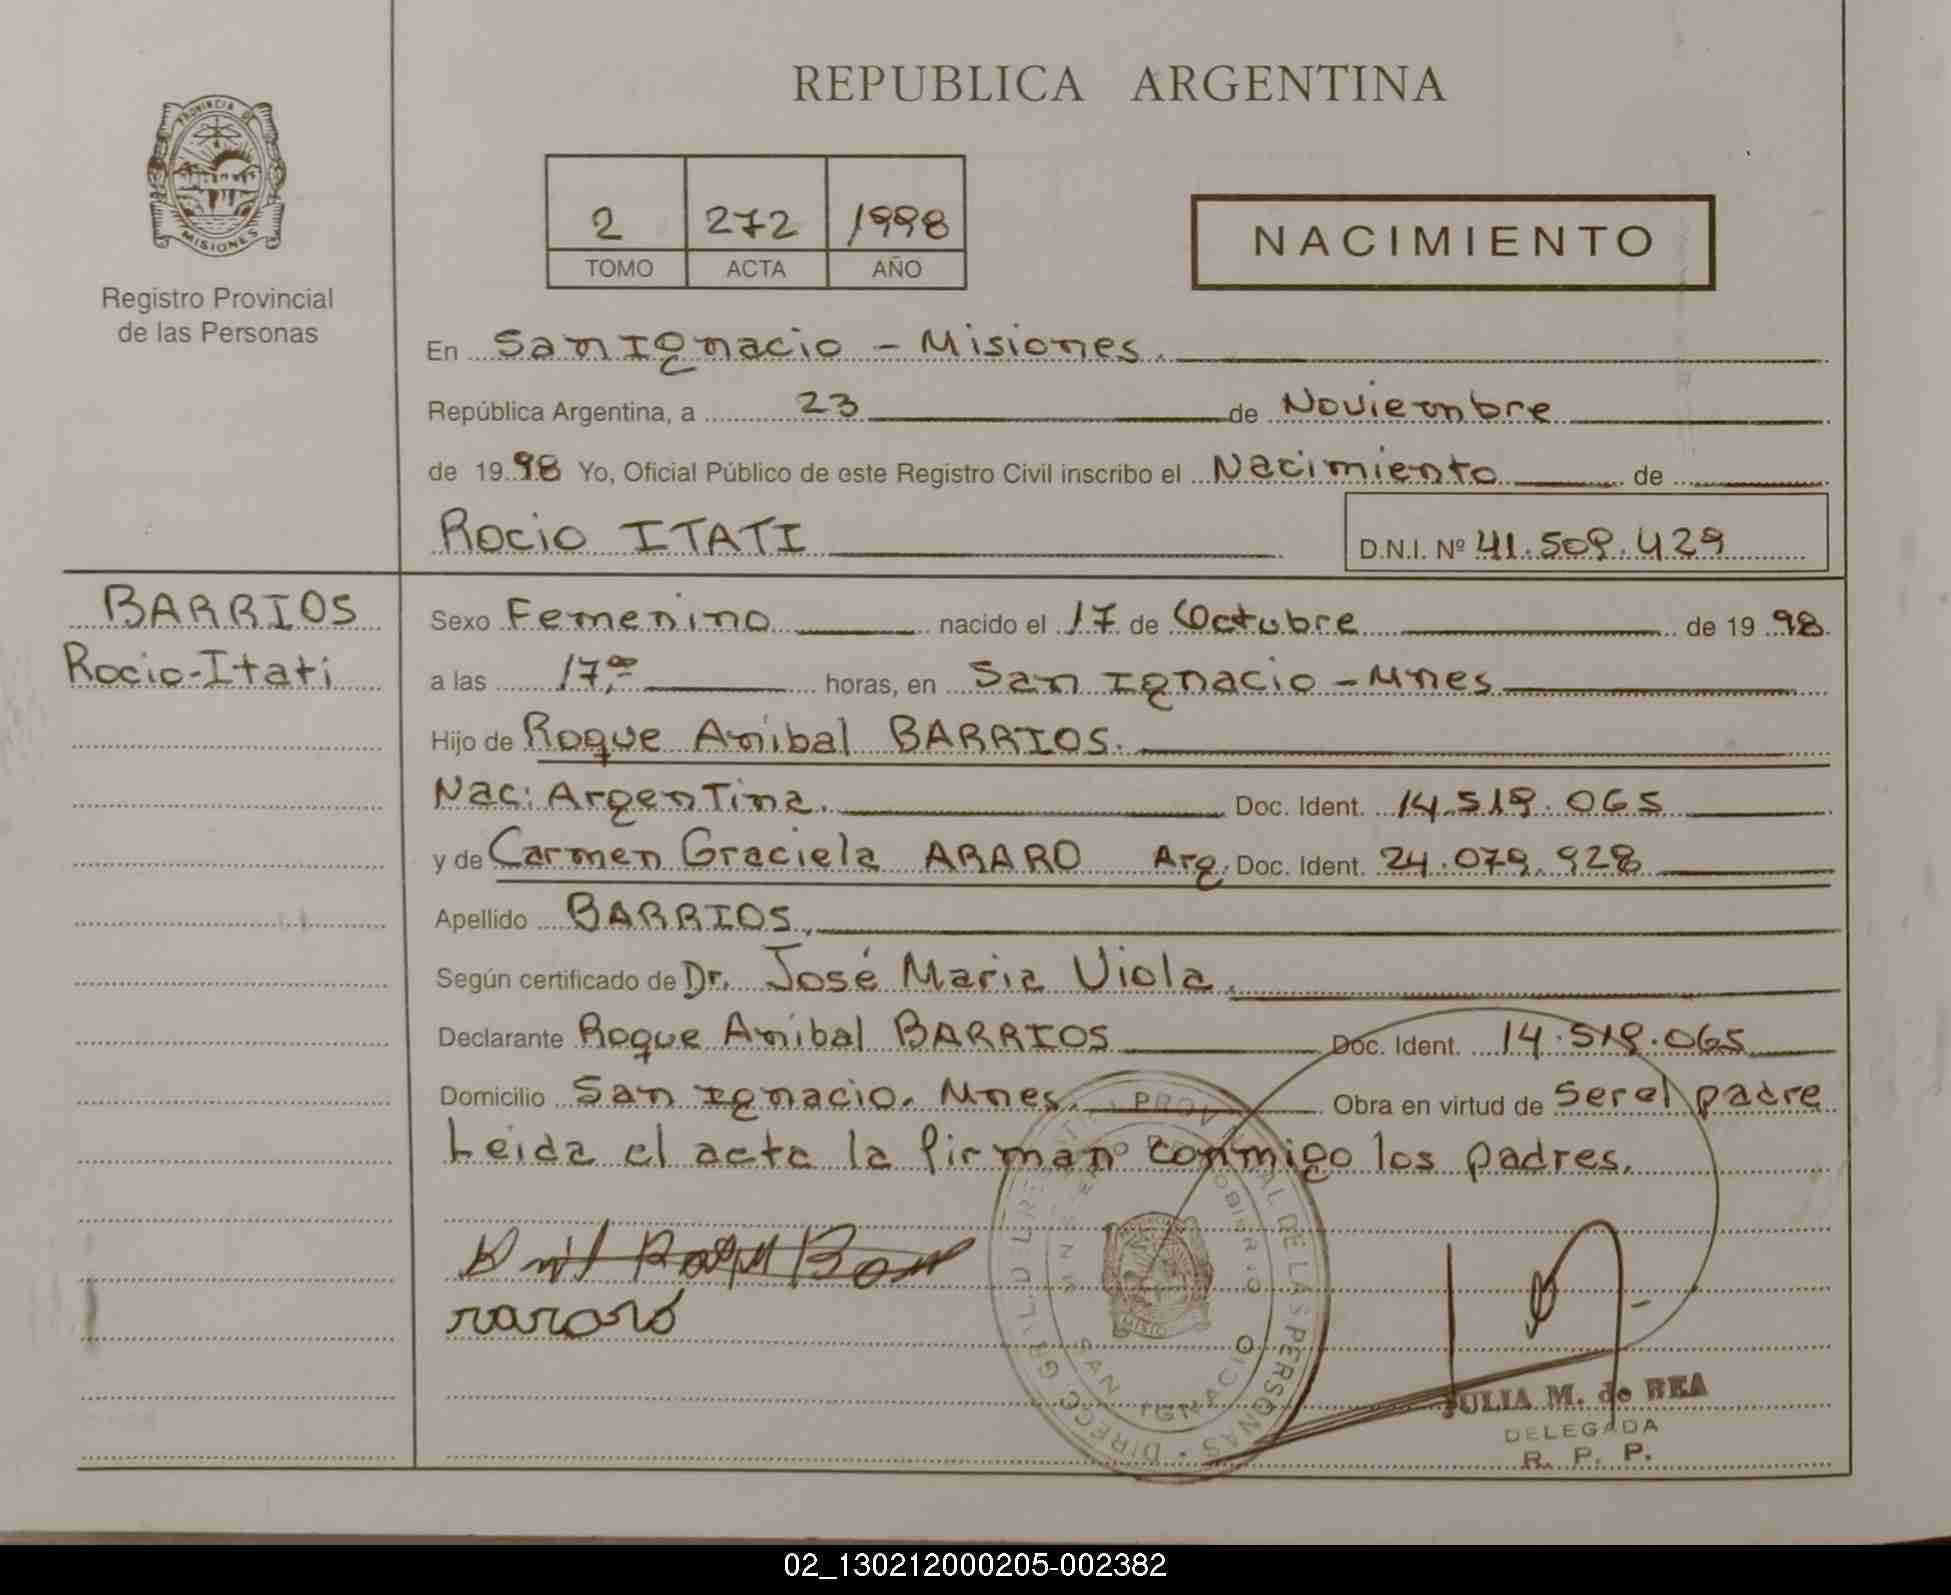 REPUBLICA ARGENTINA
PROVINCIA DE
MISIONES
Registro Provincial
de las Personas
2 272 1998
TOMO ACTA AÑO
NACIMIENTO
En San Ignacio - Misiones.
República Argentina, a 23 de Noviembre
de 1998 Yo, Oficial Público de este Registro Civil inscribo el Nacimiento de
Rocio ITATI D.N.I. Nº 41.509.429
BARRIOS
Rocio-Itati
Sexo Femenino nacido el 17 de Octubre de 19 98
a las 17,00 horas, en San Ignacio - Mnes
Hijo de Roque Anibal BARRIOS.
Nac: Argentina. Doc. Ident. 14.519.065
y de Carmen Graciela ARARO Arg. Doc. Ident. 24.079.928
Apellido BARRIOS,
Según certificado de Dr. José Maria Viola.
Declarante Roque Anibal BARRIOS Doc. Ident. 14.519.065
Domicilio San Ignacio. Mnes. Obra en virtud de ser el padre
Leida el acta la firman conmigo los padres.
SAN IGNACIO
JULIA M. de BEA
DELEGADA
R. P. P.
02_130212000205-002382